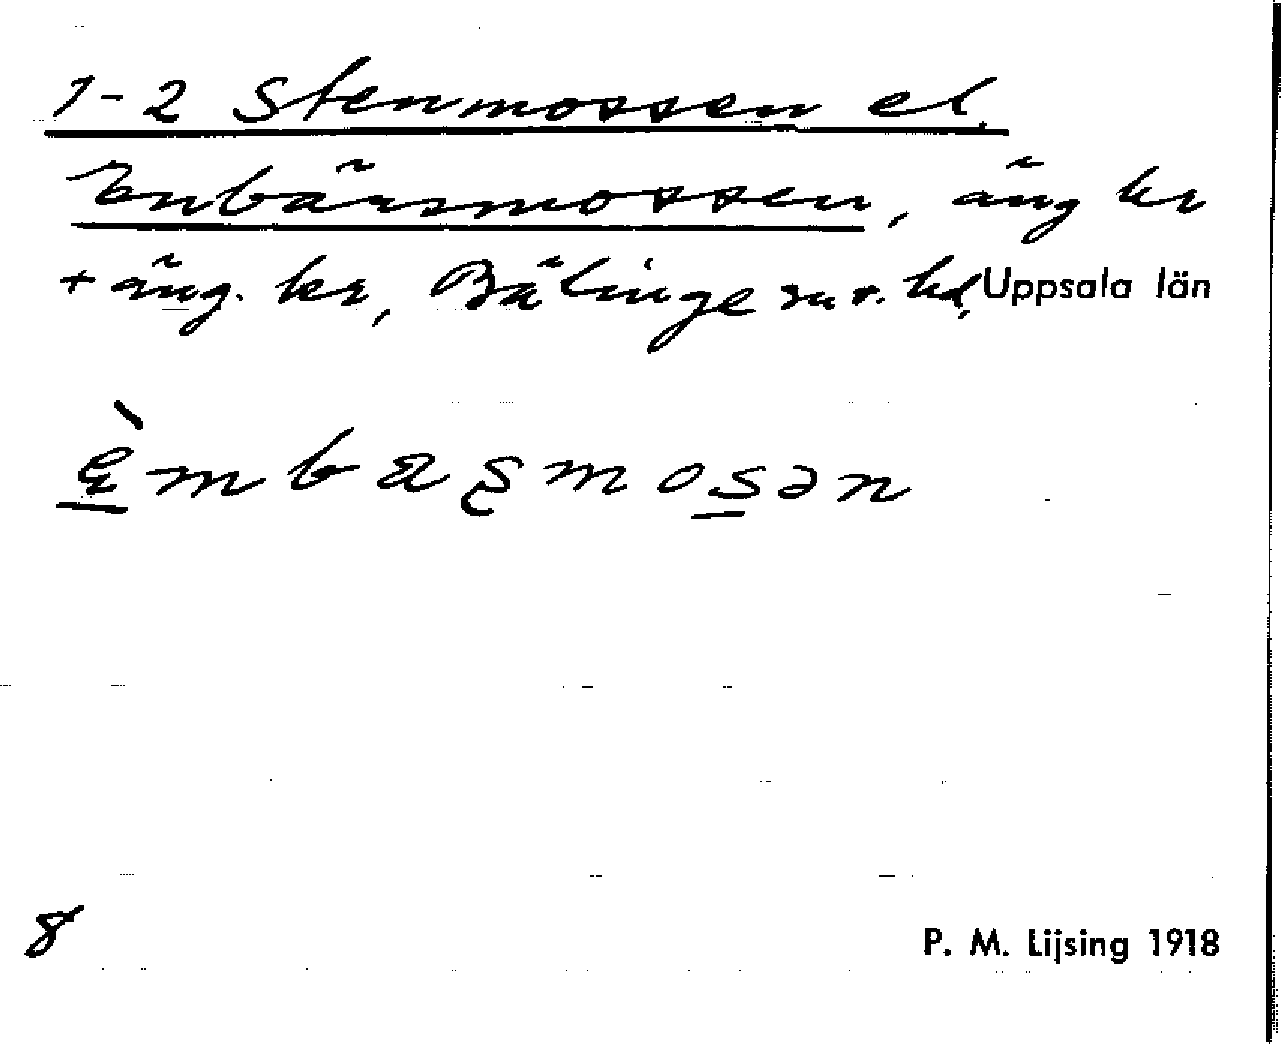 1-2 Stenmossen el.
Enbärsmossen, äng kr
+ äng. kr, Bälinge sn o. hd, Uppsala län
ɛ̀mbaʂmosən
8
P. M. Lijsing 1918